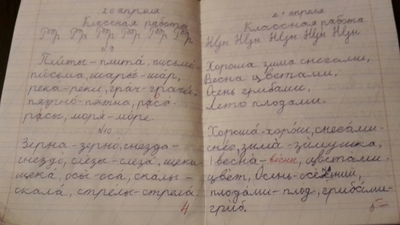 20 апреля
Классная работа
Рр Рр Рр Рр Рр Рр
Плиты - плита, письмо -
письма, шары - шар,
река - реки, грач - грачи
расы, моря - море.
Зерна - зерно, гнезда -
гнездо, слезы - слеза, щеки
щека, осы - оса, скалы -
скала, стрелы - стрела.
4
21 апреля
Классная работа
Хороша зима снегами,
Весна цветами,
Осень грибами,
Лето плодами.
Хороша - хорош, снегами -
снег, зима - зимушка,
весна - весны, цветами -
цвет, Осень - осенний,
плодами - плод, грибами -
гриб.
5-